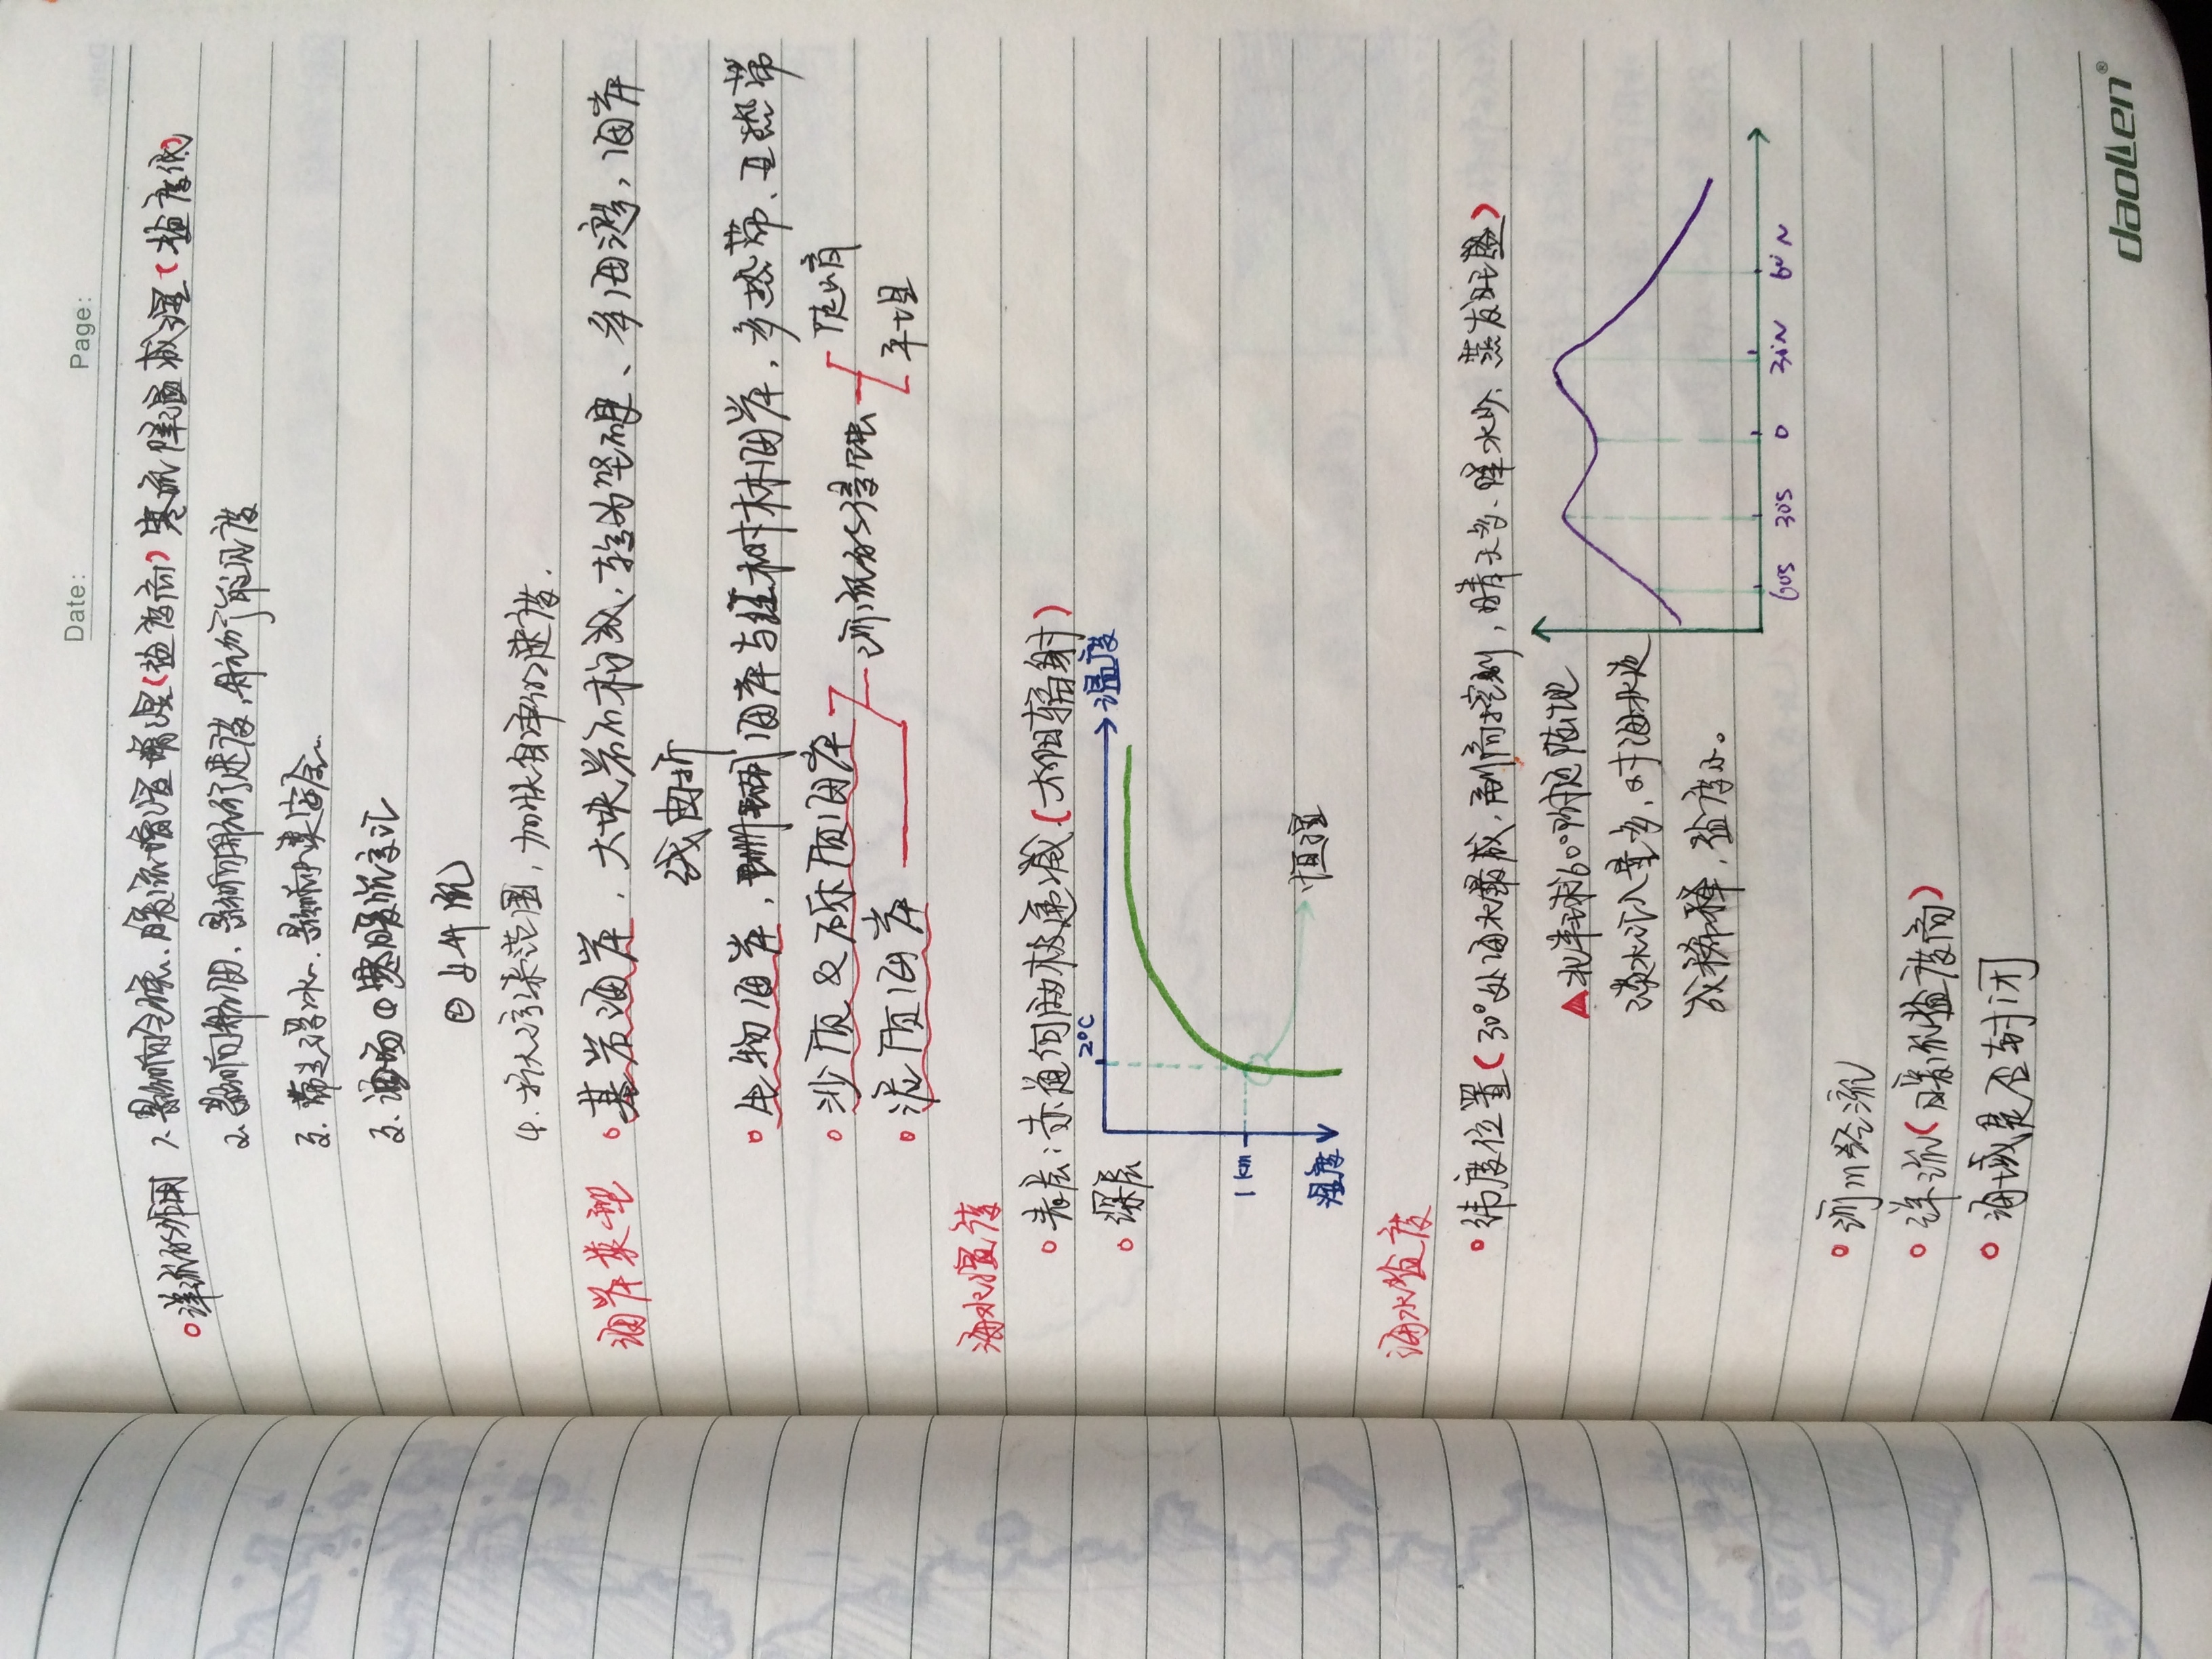 Date: Page:
洋流的作用 1. 影响气候、暖流增温增湿(盐度高)寒流降温减湿(盐度低)
2. 影响航海、影响航行速度,航行能见度
3. 带走浮冰、影响安全
3. 渔场①寒暖流交汇
②上升流
4. 扩大污染范围,加快自净的速度.
海岸类型 基岩海岸,大块岩石构成,较为坚硬、多海湾,海岸
线曲折
生物海岸,珊瑚海岸与红树林海岸,多热带、亚热带
沙质&砾质海岸
河流的侵蚀 陡峭
泥质海岸
平坦
海水温度
表层:赤道向两极递减(太阳辐射)
深层 2°C 温度
1km
温度 恒温
海水盐度
纬度位置(30°处海水最咸,副高控制,晴天多、降水少、蒸发旺盛)
▲北半球60°附近陆地
淡水汇入量多,对海水造
成稀释,盐度小。
60°S 30°S 0 30°N 60°N
河川径流
洋流(暖流盐度高)
海域是否封闭
daollen®